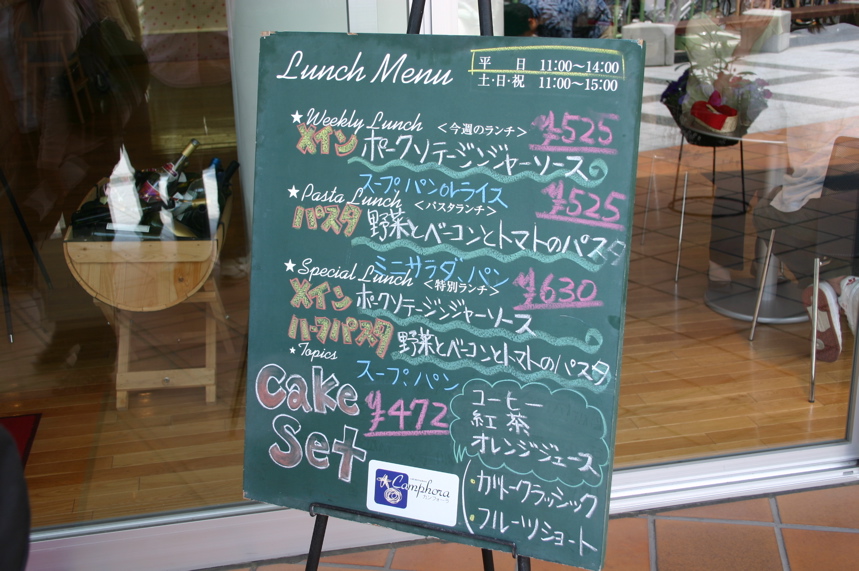 Lunch Menu
平 日 11:00～14:00
土・日・祝 11:00～15:00
★Weekly Lunch ＜今週のランチ＞ ¥525
メイン ポークソテージンジャーソース
スープ パンorライス
★Pasta Lunch ＜パスタランチ＞ ¥525
パスタ 野菜とベーコンとトマトのパスタ
ミニサラダ、パン
★Special Lunch ＜特別ランチ＞ ¥630
メイン ポークソテージンジャーソース
ハーフパスタ 野菜とベーコンとトマトのパスタ
スープ、パン
★Topics
Cake Set ¥472
コーヒー
紅茶
オレンジジュース
ガトークラッシック
フルーツショート
Camphora